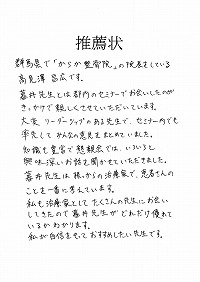 推薦状
群馬県で「からか整骨院」の院長をしている
高見澤昌広です。
藤井先生とは都内のセミナーでお会いしたのが
きっかけで親しくさせていただいています。
大変、リーダーシップのある先生で、セミナー内でも
率先してみんなの意見をまとめていました。
知識も豊富で懇親会では、いろいろと
興味深いお話を聞かせていただきました。
藤井先生は根っからの治療家で、患者さんの
ことを一番に考えています。
私も治療家としてたくさんの先生にお会い
してきたので藤井先生がどれだけ優れて
いるかわかります。
私が自信をもっておすすめしたい先生です。